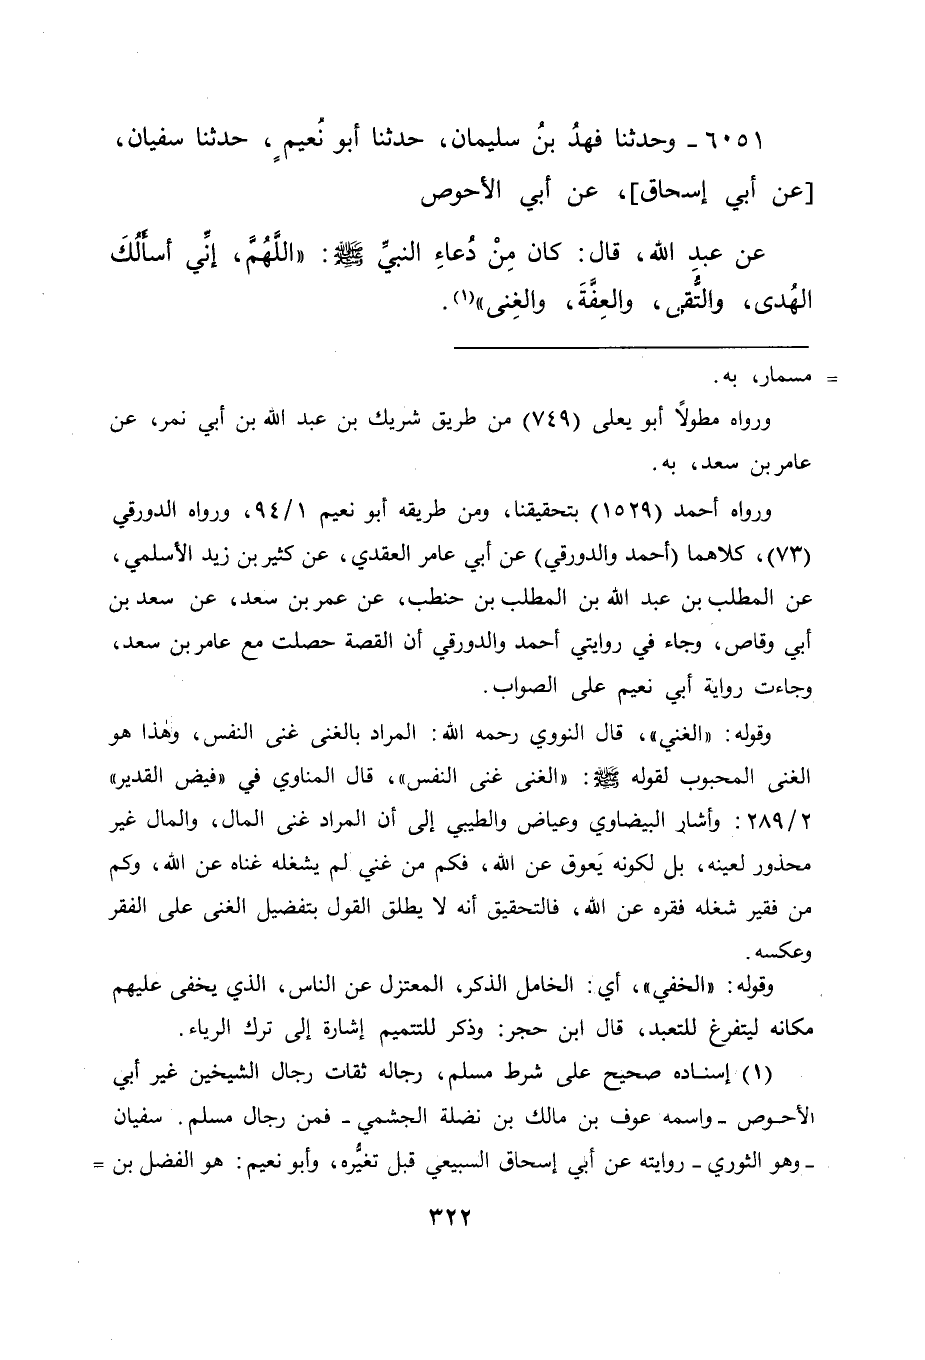 ٦٠٥١ - وحدثنا فهدُ بنُ سليمان، حدثنا أبو نُعيمٍ، حدثنا سفيان،
[عن أبي إسحاق]، عن أبي الأحوص
عن عبدِ الله، قال: كان مِنْ دُعاءِ النبيِّ ﷺ: «اللَّهُمَّ، إنِّي أسأَلُكَ
الهُدى، والتُّقى، والعِفَّةَ، والغِنى»(١).
= مسمار، به.
ورواه مطولًا أبو يعلى (٧٤٩) من طريق شريك بن عبد الله بن أبي نمر، عن
عامر بن سعد، به.
ورواه أحمد (١٥٢٩) بتحقيقنا، ومن طريقه أبو نعيم ٩٤/١، ورواه الدورقي
(٧٣)، كلاهما (أحمد والدورقي) عن أبي عامر العقدي، عن كثير بن زيد الأسلمي،
عن المطلب بن عبد الله بن المطلب بن حنطب، عن عمر بن سعد، عن سعد بن
أبي وقاص، وجاء في روايتي أحمد والدورقي أن القصة حصلت مع عامر بن سعد،
وجاءت رواية أبي نعيم على الصواب.
وقوله: «الغني»، قال النووي رحمه الله: المراد بالغنى غنى النفس، وهٰذا هو
الغنى المحبوب لقوله ﷺ: «الغنى غنى النفس»، قال المناوي في «فيض القدير»
٢٨٩/٢: وأشار البيضاوي وعياض والطيبي إلى أن المراد غنى المال، والمال غير
محذور لعينه، بل لكونه يَعوق عن الله، فكم من غني لم يشغله غناه عن الله، وكم
من فقير شغله فقره عن الله، فالتحقيق أنه لا يطلق القول بتفضيل الغنى على الفقر
وعكسه.
وقوله: «الخفي»، أي: الخامل الذكر، المعتزل عن الناس، الذي يخفى عليهم
مكانه ليتفرغ للتعبد، قال ابن حجر: وذكر للتتميم إشارة إلى ترك الرياء.
(١) إسناده صحيح على شرط مسلم، رجاله ثقات رجال الشيخين غير أبي
الأحوص - واسمه عوف بن مالك بن نضلة الجشمي - فمن رجال مسلم. سفيان
- وهو الثوري - روايته عن أبي إسحاق السبيعي قبل تغيُّره، وأبو نعيم: هو الفضل بن =
٣٢٢